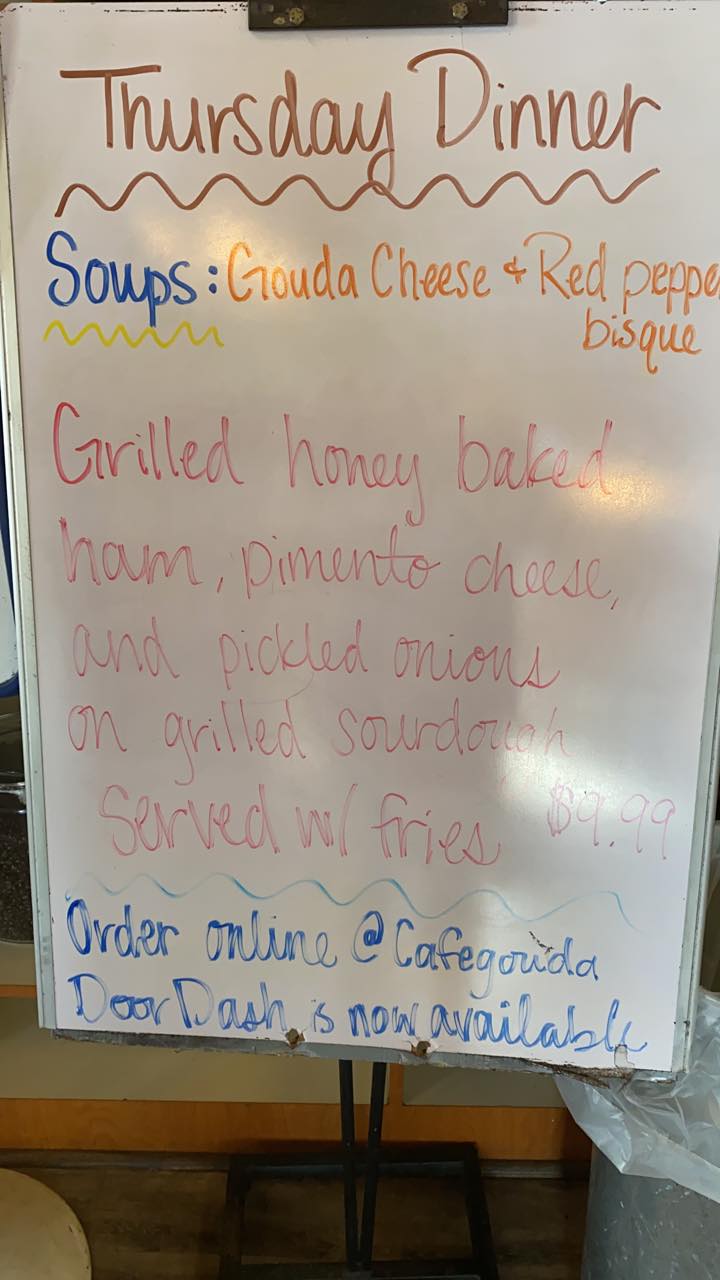 Thursday Dinner
Soups: Gouda Cheese & Red peppe
bisque
Grilled honey baked
ham, pimento cheese,
and pickled onions
on grilled sourdough
Served w/ fries $9.99
Order online @ Cafegouda
DoorDash is now available